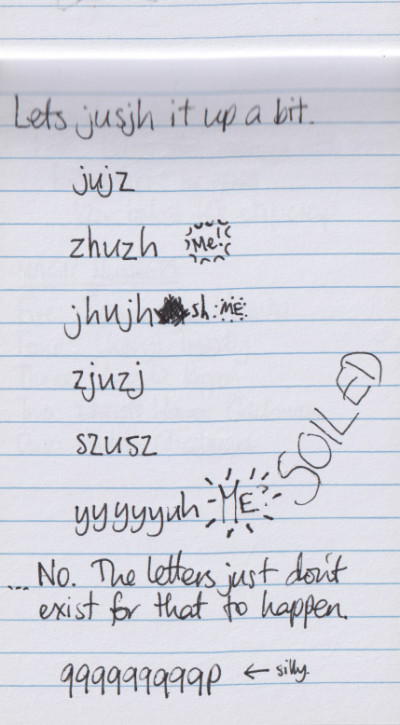 Lets jusjh it up a bit.
jujz
zhuzh Me!
jhujh sh ME
zjuzj
szusz
yyyyyuh ME?
SOILED
... No. The letters just don't
exist for that to happen.
qqqqqqqqqp ← silly.